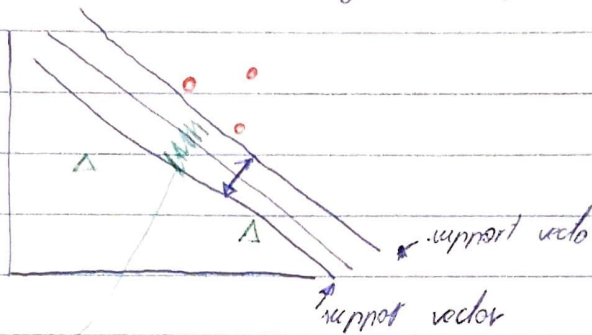 support vecto
support vector